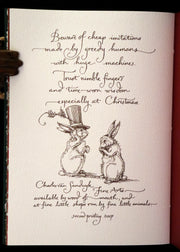 Beware of cheap imitations
made by greedy humans
with huge machines.
Trust nimble fingers
and time-worn wisdom
especially at Christmas
Charles van Sandwyk Fine Arts
available by word of mouth, and
at fine little shops run by fine little animals.
second printing 2007